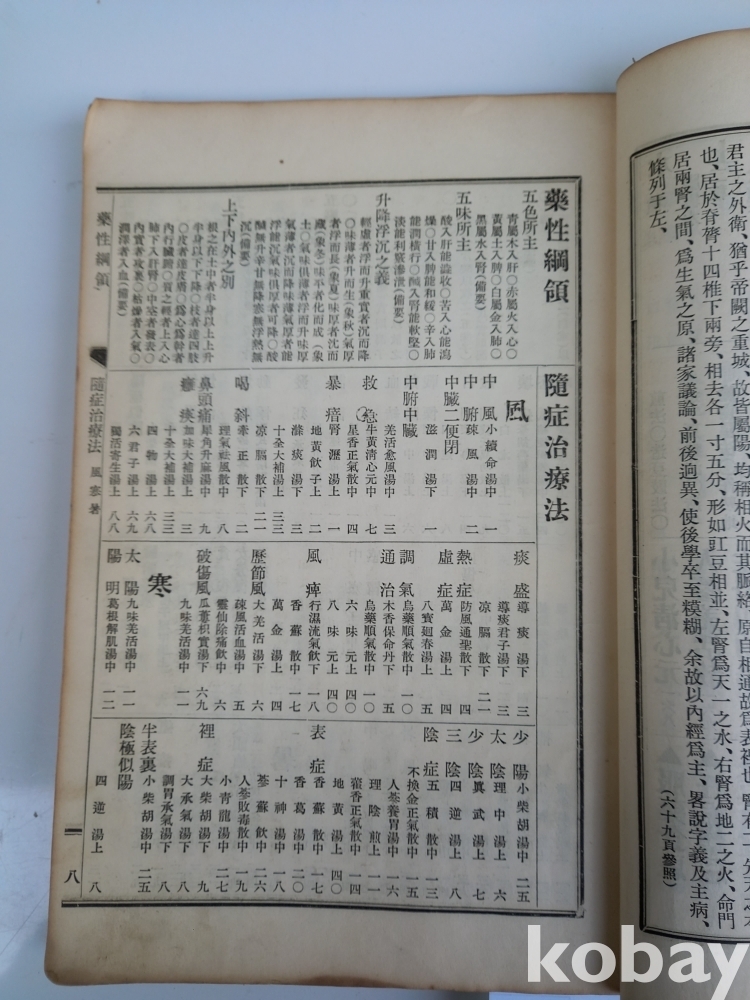 君主之外衛、猶乎帝闕之重城、故皆屬陽、均稱相火而其脈絡、原自相通故爲表裡也、腎有二
也、居於脊膂十四椎下兩旁、相去各一寸五分、形如豇豆相並、左腎爲天一之水、右腎爲地二之火、命門
居兩腎之間、爲生氣之原、諸家議論、前後逈異、使後學卒至糢糊、余故以內經爲主、畧說字義及主病、
條列于左、
(六十九頁參照)
藥性綱領
五色所主
青屬木入肝○赤屬火入心○
黃屬土入脾○白屬金入肺○
黑屬水入腎(備要)
五味所主
酸入肝能澁收○苦入心能瀉
燥○甘入脾能和緩○辛入肺
能潤橫行○醎入腎能軟堅○
淡能利竅滲泄(備要)
升降浮沉之義
輕虛者浮而升重實者沉而降
○味薄者升而生(象秋)氣厚
者浮而長(象夏)味厚者沈而
藏(象冬)味平者化而成(象
土)氣味俱薄者浮而升味厚
氣薄者沉而降味薄氣厚者能
浮能沉氣味俱厚者可降○酸
醎無升辛甘無降寒無浮熱無
沉(備要)
上下內外之別
根之在土中者半身以上上升
半身以下下降○枝者達四肢
○皮者達皮膚○爲心爲幹者
內行臟腑○質之輕者上入心
肺下入肝腎○中空者發表○
內實者攻裏○枯燥者入氣○
潤澤者入血(備要)
隨症治療法
風
中風 小續命湯中 一
中腑 疎風湯中 二
中臟二便閉
滋潤湯下 一
中腑中臟
羌活愈風湯中 三
救急 牛黃淸心元中 七
星香正氣散中 四
暴瘖 腎瀝湯上 一
地黃飮子上 二
滌痰湯下 三
十全大補湯上 三三
凉膈散下 二一
喎斜 牽正散下 二
理氣祛風散中 八
鼻頭痛 犀角升麻湯中 九
癱瘓 加味大補湯中 三
十全大補湯上 三三
四物湯上 六八
六君子湯上 六九
獨活寄生湯上 八八
痰盛 導痰湯下 三
導痰君子湯下 三
凉膈散下 二一
熱症 防風通聖散下 四
虛症 萬金湯上 四
八寶廻春湯上 五
調氣 烏藥順氣散中 一〇
通治 木香保命丹下 五
烏藥順氣散中 一〇
六味元上 四〇
八味元上 四〇
風痺 行濕流氣飮下 一八
香蘇散中 一七
萬金湯上 四
歷節風 大羌活湯下 六
疎風活血湯中 五
靈仙除痛飮中 六
破傷風 瓜蔞枳實湯下 六九
九味羌活湯中 一一
寒
太陽 九味羌活湯中 一一
陽明 葛根解肌湯中 一二
少陽 小柴胡湯中 二五
太陰 理中湯上 六
少陰 眞武湯上 七
三陰 四逆湯上 八
陰症 五積散中 一三
不換金正氣散中 一五
人蔘養胃湯中 一六
理陰煎上 一一
藿香正氣散中 一四
地黃湯上 四〇
表症 香蘇散中 一七
香葛湯中 一七
十神湯中 一八
蔘蘇飮中 二六
人蔘敗毒散中 一九
小青龍湯中 二七
裡症 大柴胡湯下 九
大承氣湯下 八
調胃承氣湯下 八
半表裏 小柴胡湯中 二五
陰極似陽
四逆湯上 八
藥性綱領
隨症治療法 風 寒 暑
八
kobay